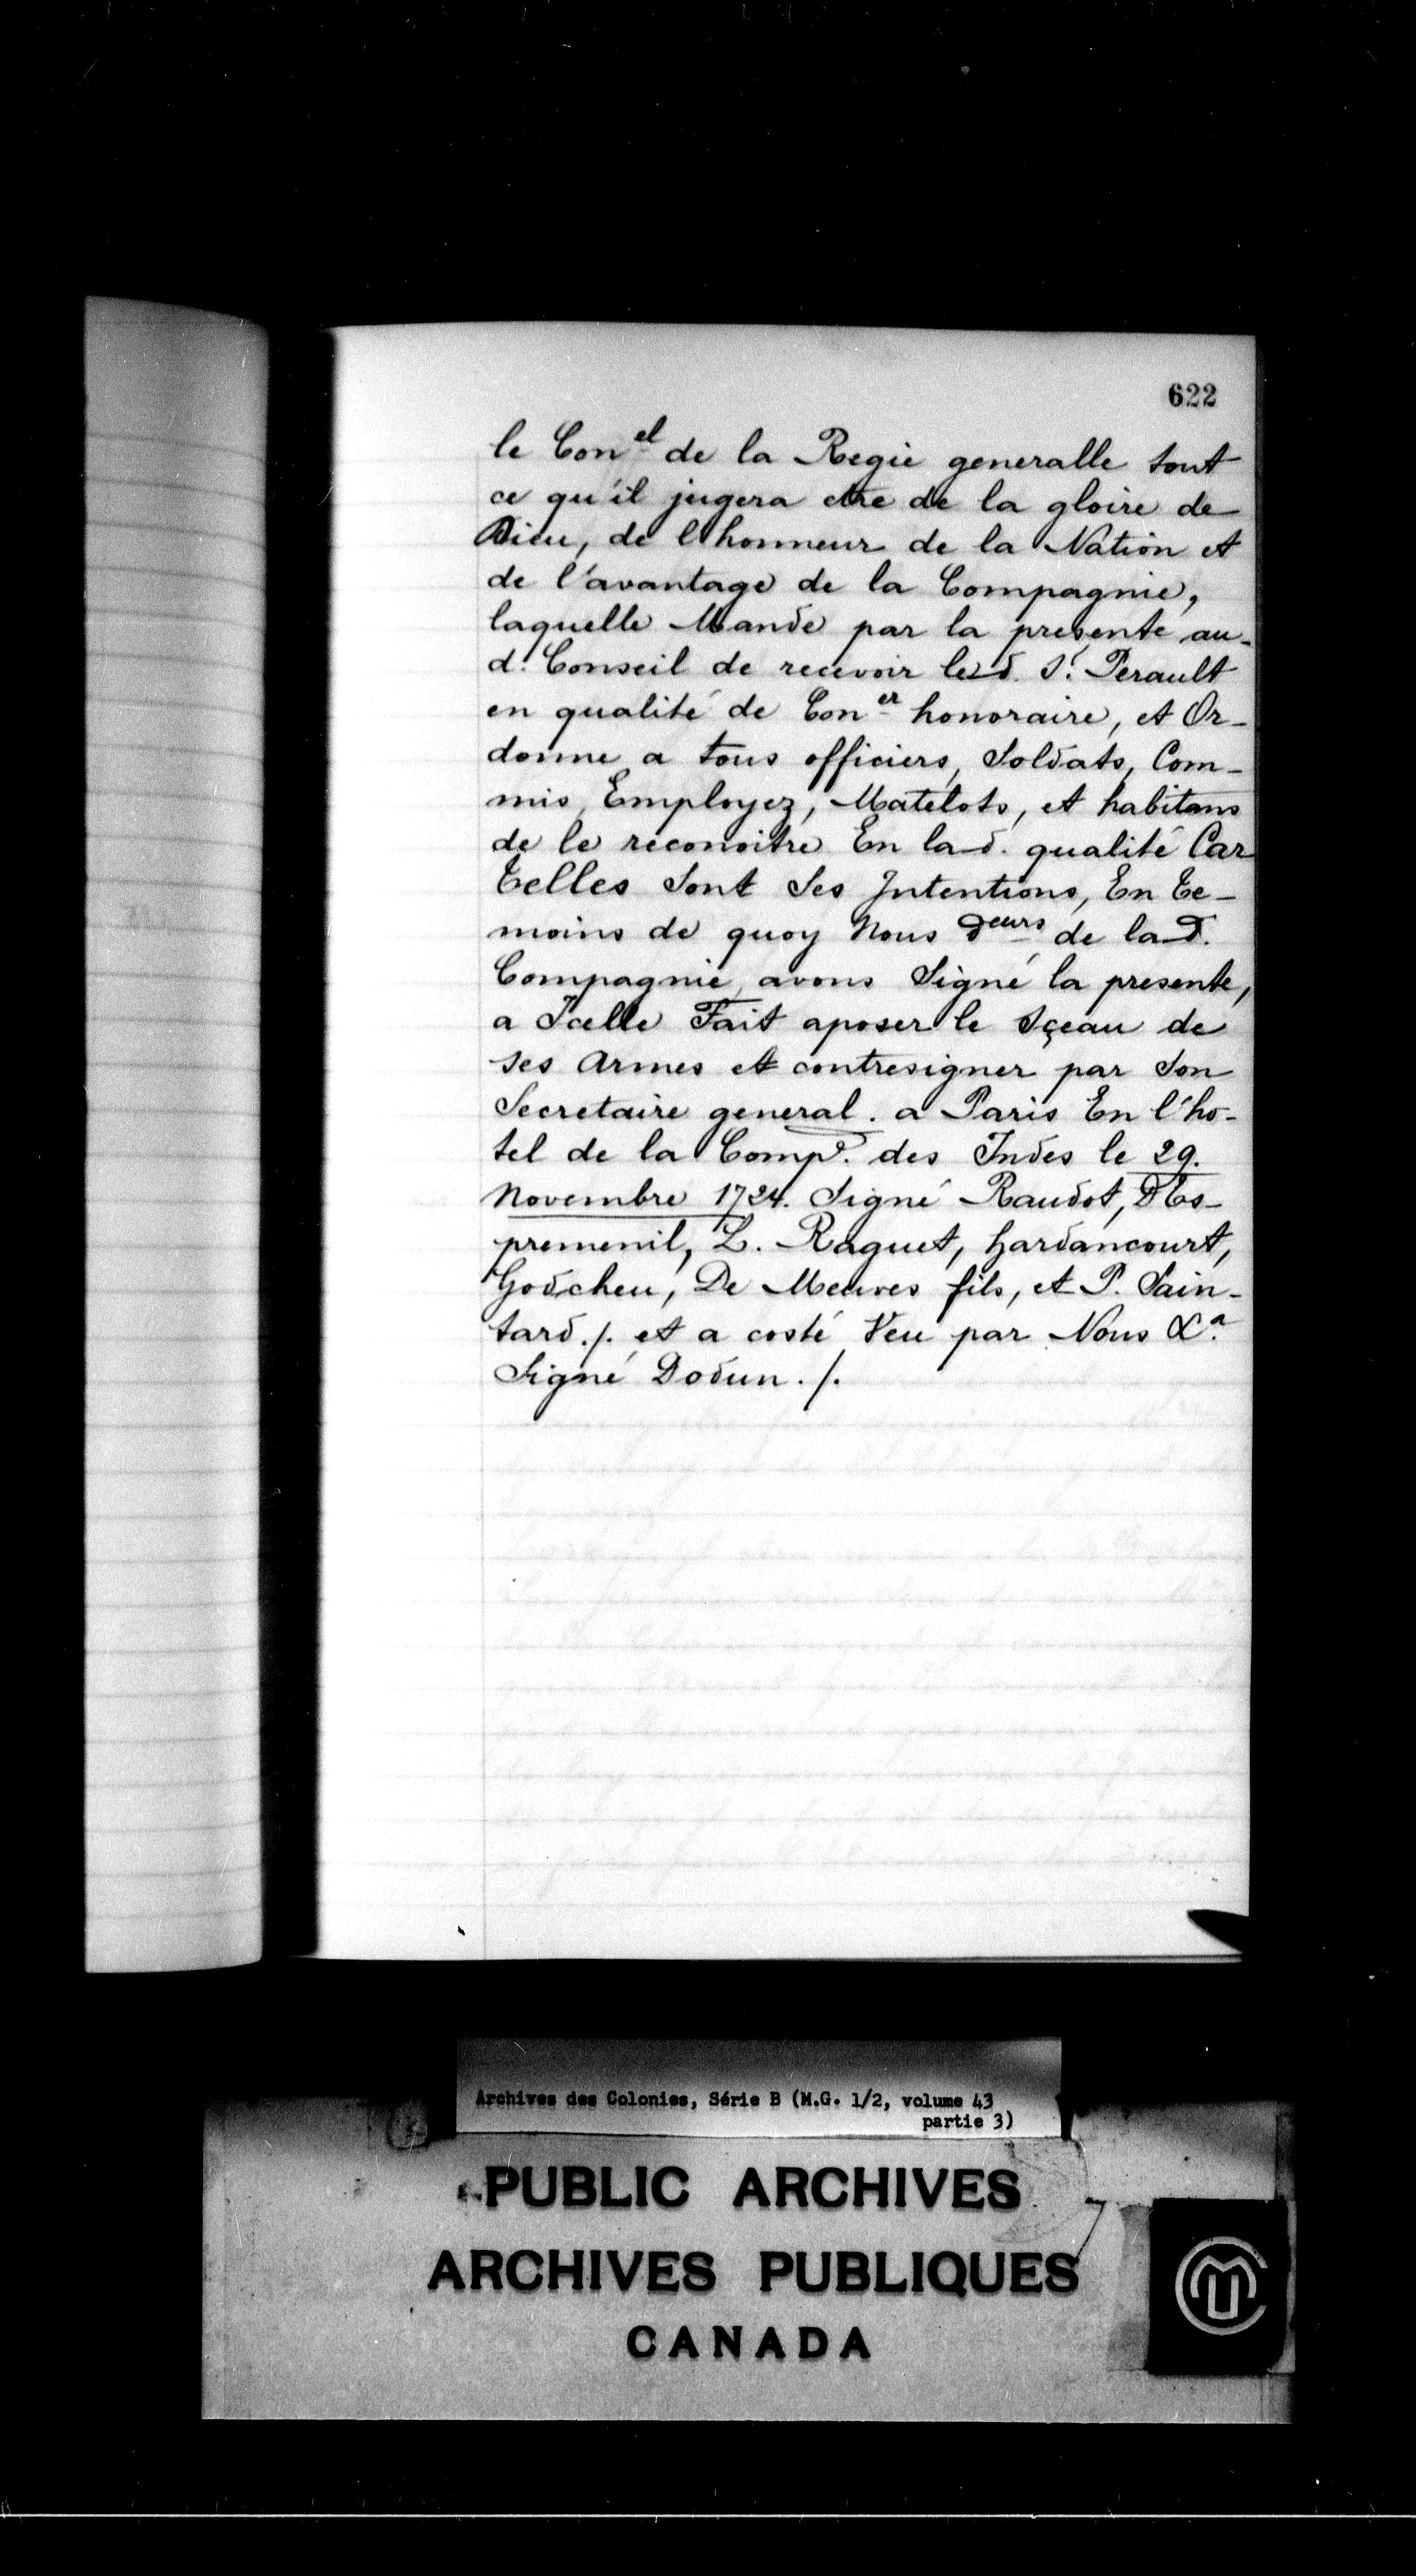 622
le Con<sup>el</sup> de la Regie generalle tout
ce qu'il jugera etre de la gloire de
Dieu, de l'honneur de la Nation et
de l'avantage de la Compagnie,
laquelle Mande par la presente au-
d. Conseil de recevoir led. S.<sup>r</sup> Perault
en qualité de Con<sup>er</sup> honoraire, et Or-
donne a tous officiers, Soldats, Com-
mis, Employez, Matelots, et habitans
de le reconoitre En lad. qualité Car
telles sont ses Intentions, En te-
moins de quoy Nous D<sup>eurs</sup> de lad.
Compagnie avons Signé la presente,
a Icelle Fait aposer le Sçeau de
ses Armes et contresigner par son
Secretaire general. a Paris En l'ho-
tel de la Comp<sup>e</sup>. des Indes le 29.
Novembre 1724. Signé Raudot, D'Es-
premenil, L. Raguet, hardancourt,
Godcheu, De Meuves fils, et P. Sain-
tard./. et a costé Veu par Nous &<sup>a</sup>.
Signé Dodun./.
Archives des Colonies, Série B (M.G. 1/2, volume 43
partie 3)
PUBLIC ARCHIVES
ARCHIVES PUBLIQUES
CANADA